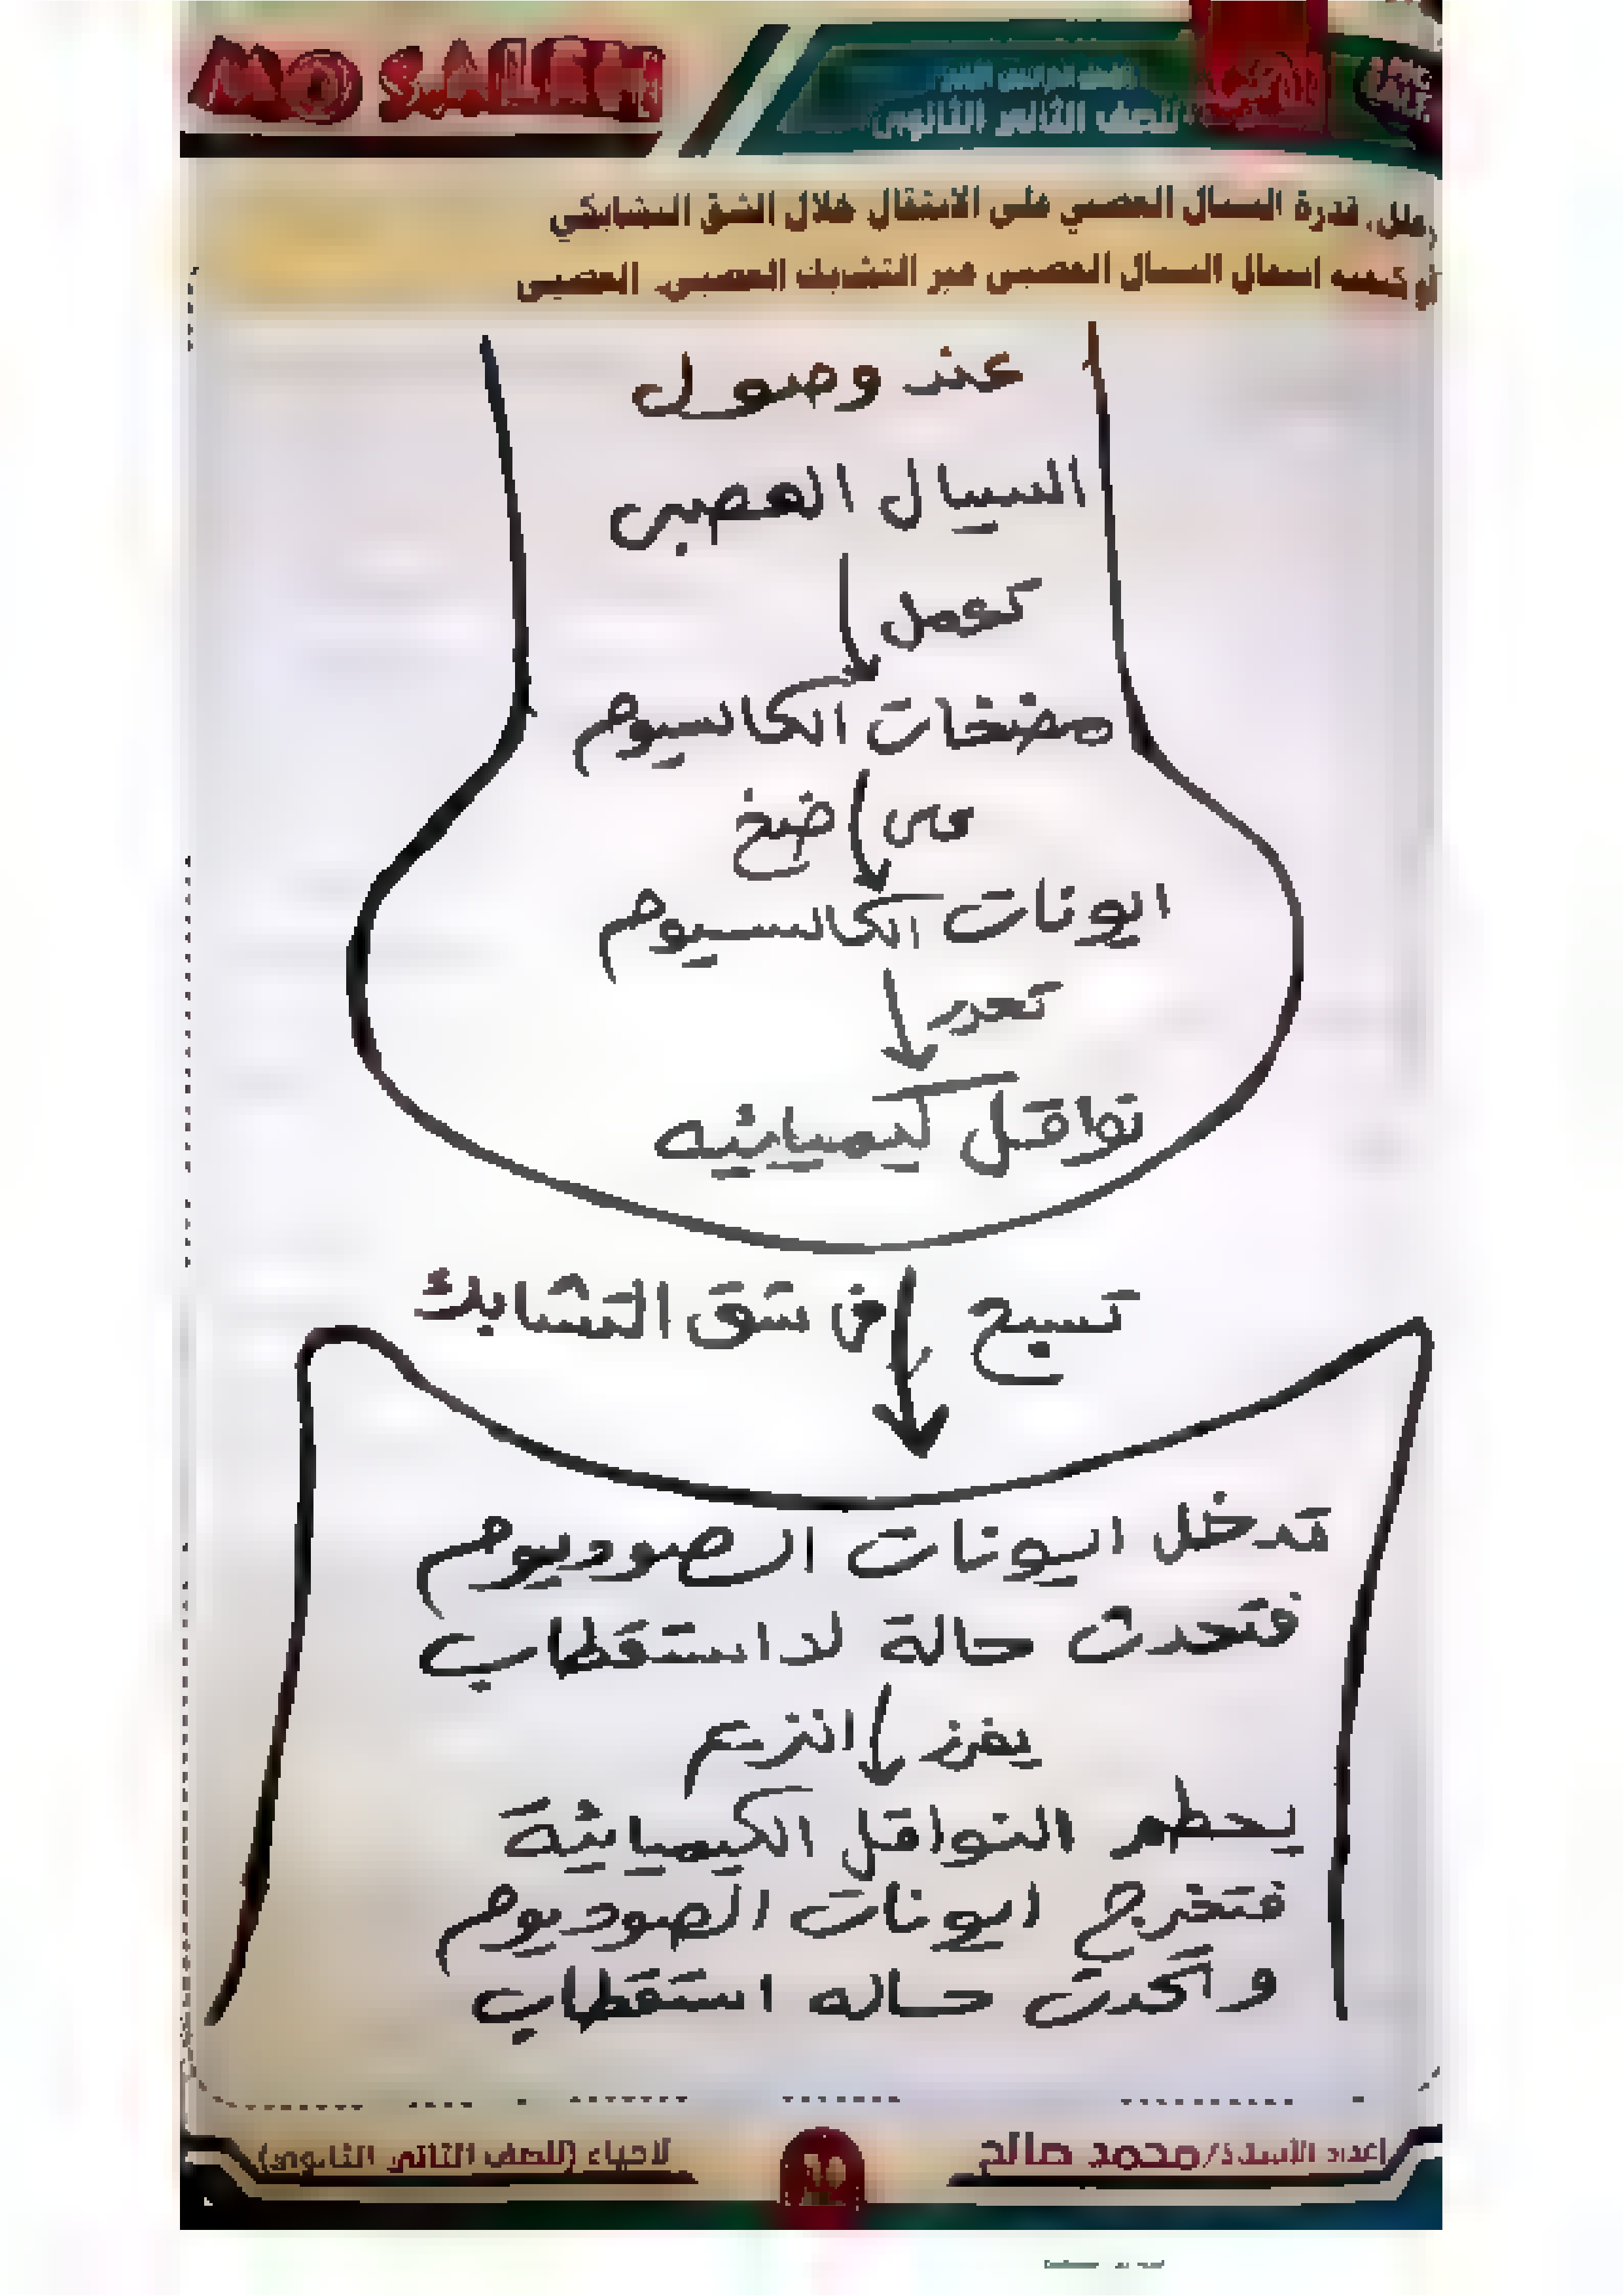 MO SALEH
للصف الثاني الثانوي
(علل) قدرة السيال العصبي على الانتقال خلال الشق التشابكي
السيال العصبي عبر التشابك العصبي- العصبي
عند وصول
السيال العصبى
تعمل
مضخات الكالسيوم
على ضخ
ايونات الكالسيوم
تحرر
نواقل كيميائيه
تسبح فى شق التشابك
تدخل ايونات الصوديوم
فتحدث حالة لااستقطاب
يفرز انزيم
يحطم النواقل الكيميائية
فتخرج ايونات الصوديوم
وتحدث حاله استقطاب
إعداد الأستاذ/محمد صالح
لاحياء (للصف الثاني الثانوي)